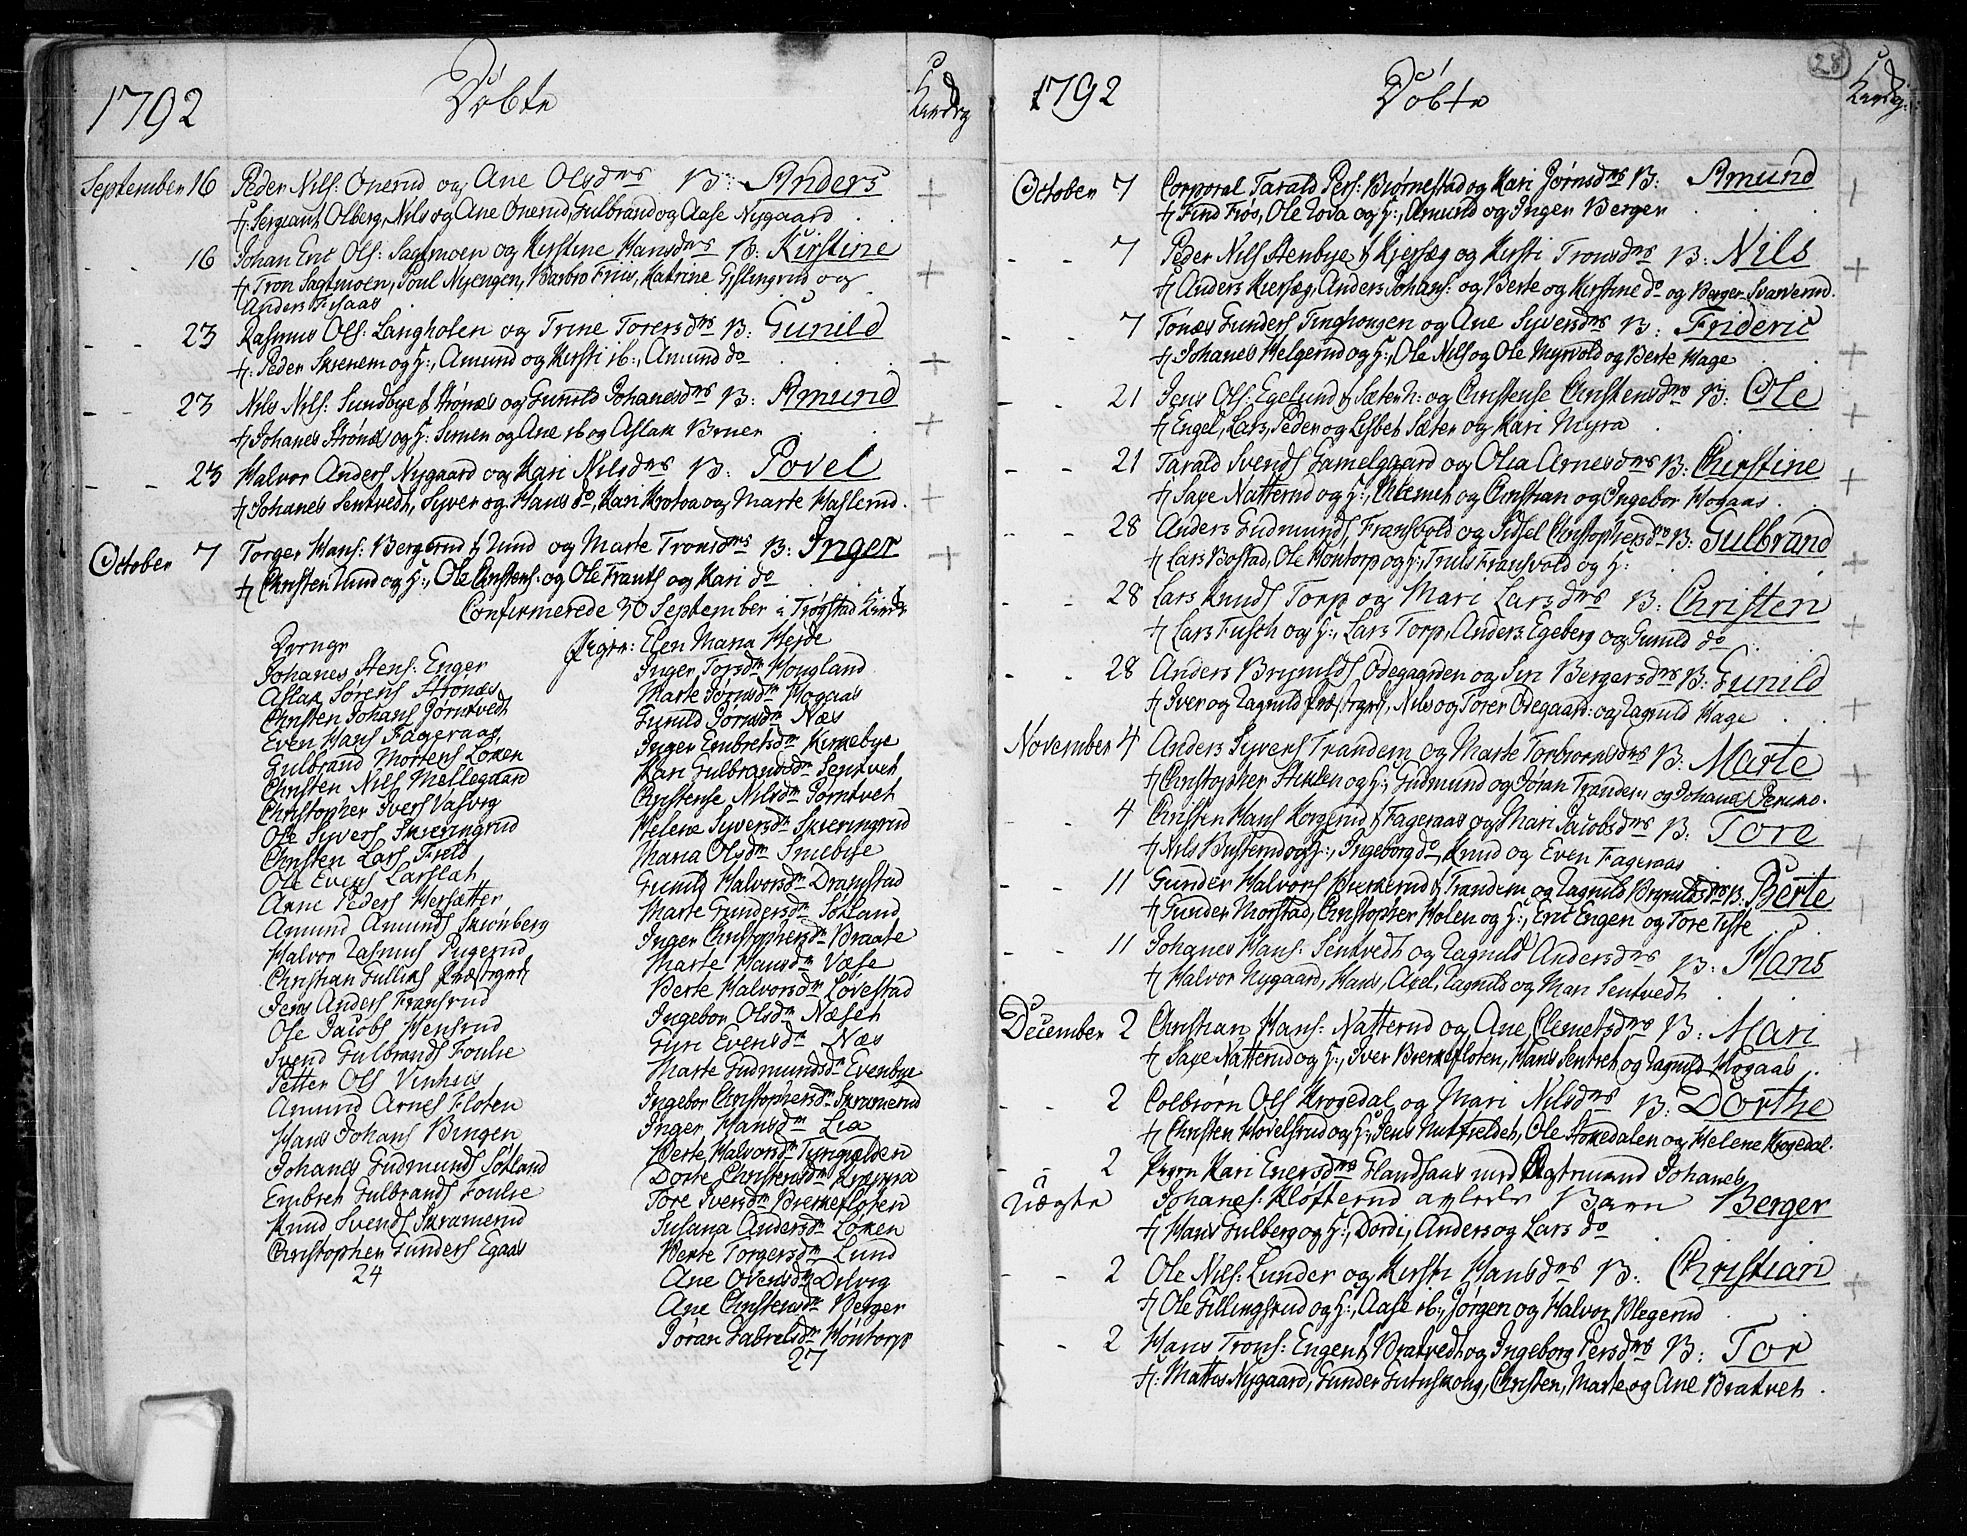 1792 Döbte Kirdig
September 16 Peder Nils: Onerud og Ane Olsdrs B: Anders
Sergiant Olberg, Nils og Ane Onerud, Gulbrand og Aase Nygaard
- - 16 Johan Eric Ols: Sagtmoen og Kirstine Hansdrs B: Kirstine
Tron Sagtmoen, Poul Nyengen, Barbro Friis, Katrine Gislingrud og
Anders Fisaas
- - 23 Rasmus Ols: Langholen og Trine Torersdrs B: Gunild
Peder Skrenem og H:, Amund og Kirsti ib:, Amund do
- - 23 Nils Nils: Sundbye Strönæs og Gunild Johanesdrs B: Amund
Johanes Strönæs og H: Simen og Ane ib og Aslak Bruer
- - 23 Halvor Anders Nygaard og Kari Nilsdrs B: Povel
Johanes Sentvedt, Syver og Hans do, Kari Krotoa og Marte Haslerud.
October 7 Torger Hans: Bergerud Lund og Marte Tronsdrs B: Inger
Christen Lund og H:, Ole Christens: og Ole Frants og Kari do
Confirmerede 30 September i Trögstad Kirke
Drenge
Johanes Stens: Enger
Aslak Sörens Strönæs
Christen Johans Jörntvedt
Even Hans Fageraas
Gulbrand Mortens Loken
Christen Nils Mellegaard
Christopher Ivers Vasvig
Ole Syvers Skieringrud
Christen Lars Field
Ole Evens Larslat
Arne Peders Hersætter
Amund Amunds Skiönberg
Halvor Rasmus Pugerud
Christian Gulliks Præstegrd
Jens Anders Fransrud
Ole Jacobs Hensrud
Svend Gulbrands Foulie
Petter Ols Vinheis
Amund Arnes Floten
Hans Johans Bingen
Johanes Gudmunds Sötland
Embret Gulbrands Foulie
Knud Svends Skramerud
Christopher Gunders Egaas
24
Piger: Elen Maria Heide
Inger Torsdr Hougland
Marte Jörnsdr Hogaas
Gunild Jörnsdr Næs
Inger Embretsdr Kirkebye
Kari Gulbrandsdr Sentvet
Christense Nilsdr Jörntvet
Helene Syversdr Skieringrud
Maria Olsdr Sniebye
Gunild Halvorsdr Dramstad
Marte Gundersdr Sötland
Inger Christophersdr Braate
Marte Hansdr Væse
Berte Halvorsdr Lovestad
Ingebor Olsdr Næset
Guri Evensdr Næs
Marte Gudmundsdr Evenbye
Ingebor Christophersdr Skramerud
Inger Hansdr Lia
Berte Halvorsdr Tyngelden
Dorte Christensdr Kræppa
Tore Iversdr Bierkefloten
Susana Andersdr Loken
Berte Torgersdr Lund
Ane Ovensdr Delvig
Ane Christensdr Berger
Jöran Gabrelsdr Höntorp
27
1792 Döbte 28 Kirdig:
October 7 Corporal Tarald Pers: Biörnestad og Kari Jörnsdrs B: Amund
Find Friis, Ole Tova og H:, Amund og Inger Berger
- - 7 Peder Nils Stenbye Kiersæg og Kirsti Tronsdrs B: Nils
Anders Kiersæg, Anders Johans: og Berte og Kirstine do og Berger Svarverud.
- - 7 Tonæs Gunders Tinghougen og Ane Syversdrs B: Frideric
Johanes Helgerud og H:, Ole Nils og Ole Myrvold og Berte Hage
- - 21 Jens Ols: Egelund Sæter og Christense Christensdrs B: Ole
Engel, Lars, Peder og Lisbet Sæter og Kari Myra
- - 21 Tarald Svends Gamelgaard og Olia Arnesdrs B: Chirstine
Saxe Natterud og H:, Clemet og Christian og Ingebor Hogaas
- - 28 Anders Gudmunds, Fransvold og Sidsel Christophersdr B: Gulbrand
Lars Bostad, Ole Höntorp og H:, Truls Fransvold og H:
- - 28 Lars Knuds Torp og Mari Larsdrs B: Christen
Lars Fusch og H:, Lars Torp, Anders Egeberg og Gunild do
- - 28 Anders Brynilds Ödegaarden og Siri Bergersdrs B: Gunild
Iver og Ragnild Præstegrd, Nils og Torer Ödegaard: og Ragnild Hage
November 4 Anders Syvers Trandem og Marte Torbiornsdrs B: Marte
Christopher Stielen og H:, Gudmund og Jöran Trandem og Johanes
- - 4 Christen Hans Korgerud Fageraas og Mari Jacobsdrs B: Tore
Nils Busterud og H:, Ingeborg do, Knud og Even Fageraas
- - 11 Gunder Halvors Bierkerud Trandem og Ragnild Brynildsdrs B: Berte
Gunder Morstad, Christopher Holen og H:, Eric Engen og Tore Tiste
- - 11 Johanes Hans: Sentvedt og Ragnild Andersdrs B: Hans
Halvor Nygaard, Hans, Axel, Ragnild og Mari Sentvedt
December 2 Christian Hans: Natterud og Ane Clemetsdrs B: Mari
Saxe Natterud og H:, Iver Bierkefloten, Hans Sentvet og Ragnild Hogaas.
- - 2 Colbiörn Ols Krogedal og Mari Nilsdrs B: Dorthe
Christen Hovelsrud og H:, Jens Nutfieldet, Ole Stokedalen og Helene Krogedal.
- - 2 Pigen Kari Enersdrs Glandsaas med Johanes
Uægte Johanes: Klöfterud aulede Barn Berger
Hans Gulberg og H:, Dordi, Anders og Lars do
- - 2 Ole Nils: Lunder og Kirsti Hansdrs B: Christian
Ole Gillingsrud og H:, Aase ib:, Jörgen og Halvor Blegerud
- - 2 Hans Trons: Engen Bratvedt og Ingeborg Persdrs B: Tor
Mattis Nygaard, Gunder Gutuskong, Christen, Marte og Ane Bratvet.